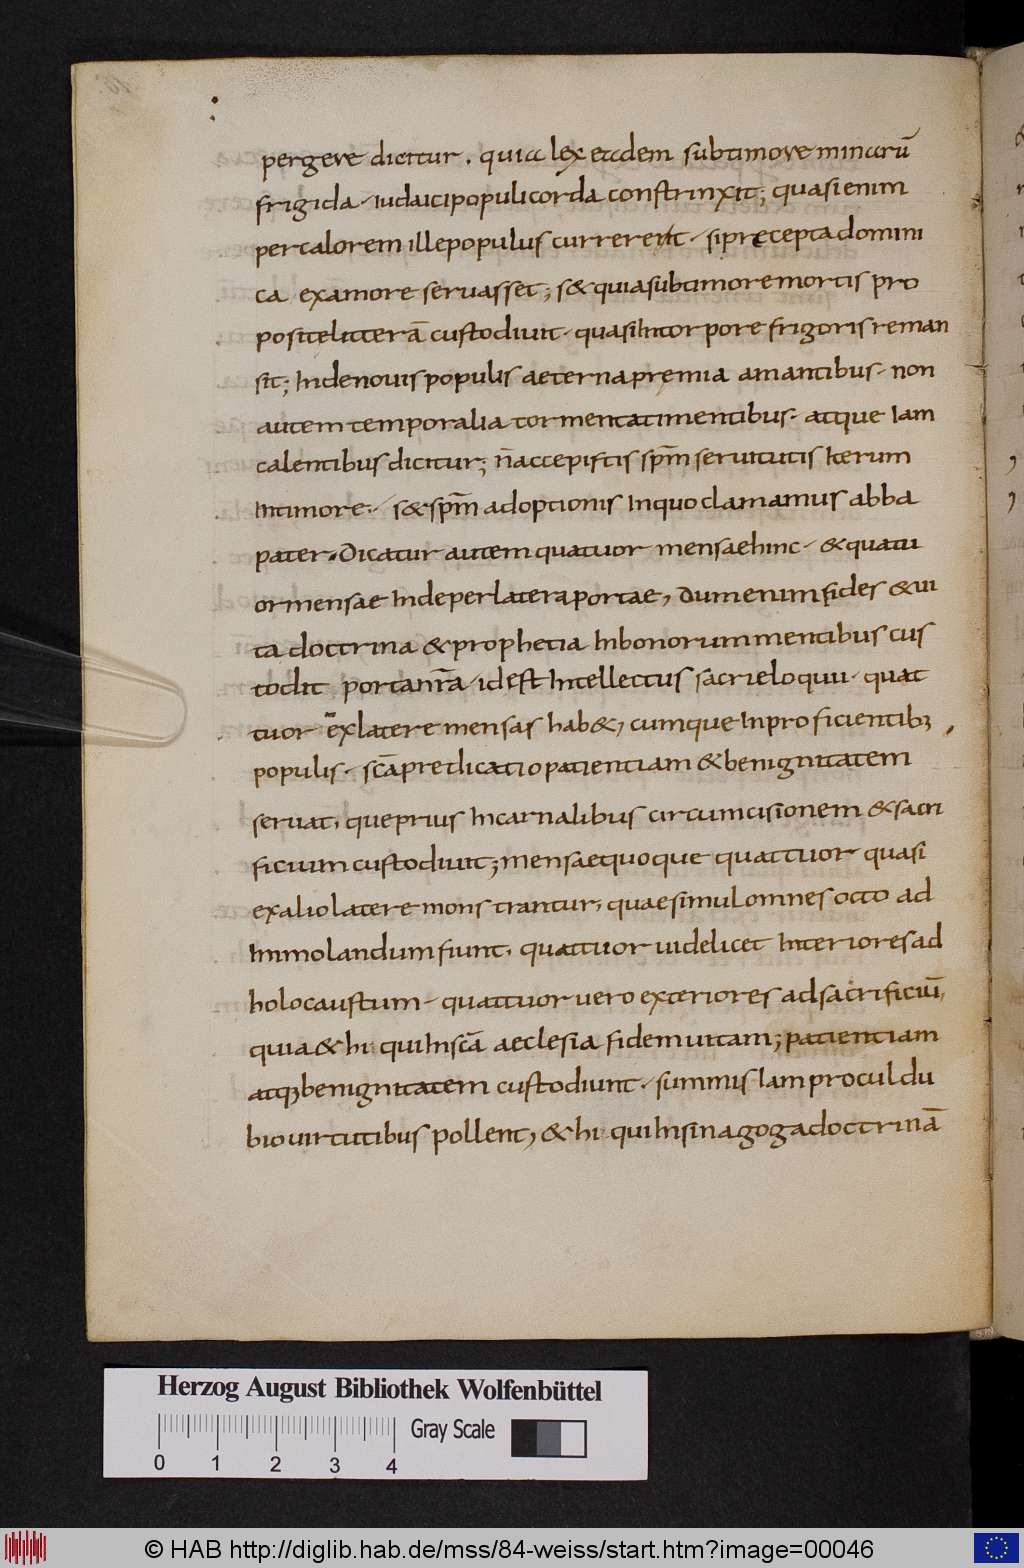 pergere dicitur. quia lex eadem sub timore minarū
frigida. iudaici populi corda constrinxit; quasi enim
per calorem ille populus curreret. si precepta domini
ca ex amore seruasset; s& quia sub timore mortis pro
posite litterā custodiuit. quasi In torpore frigoris reman
sit; Inde nouis populis aeterna premia amantibus. non
autem temporalia tormenta timentibus. atque Iam
calentibus dicitur; n̄ accepistis sp̄m seruitutis Iterum
In timore. s& sp̄m adoptionis In quo clamamus abba
pater. Dicatur autem quatuor mensae hinc. & quatu
or mensae Inde per latera portae, dum enim fides & ui
ta doctrina & prophetia In bonorum mentibus cus
todit porta nr̄a. id est Intellectus sacri eloquii. quat
tuor ex latere mensas hab&, cumque In proficientibꝫ
populis. sc̄a predicatio patientiam & benignitatem
seruat, que prius In carnalibus circumcisionem & sacri
ficium custodiuit; mensae quoque quattuor quasi
ex alio latere monstrantur, quae simul omnes octo ad
Immolandum fiunt, quattuor uidelicet Interiores ad
holocaustum. quattuor uero exteriores ad sacrificiū,
quia & hi qui In sc̄a aeclesia fidem uitam; patientiam
atqꝫ benignitatem custodiunt. summis Iam procul du
bio uirtutibus pollent, & hi qui In sinagoga doctrinā
Herzog August Bibliothek Wolfenbüttel
Gray Scale
0 1 2 3 4
© HAB http://diglib.hab.de/mss/84-weiss/start.htm?image=00046